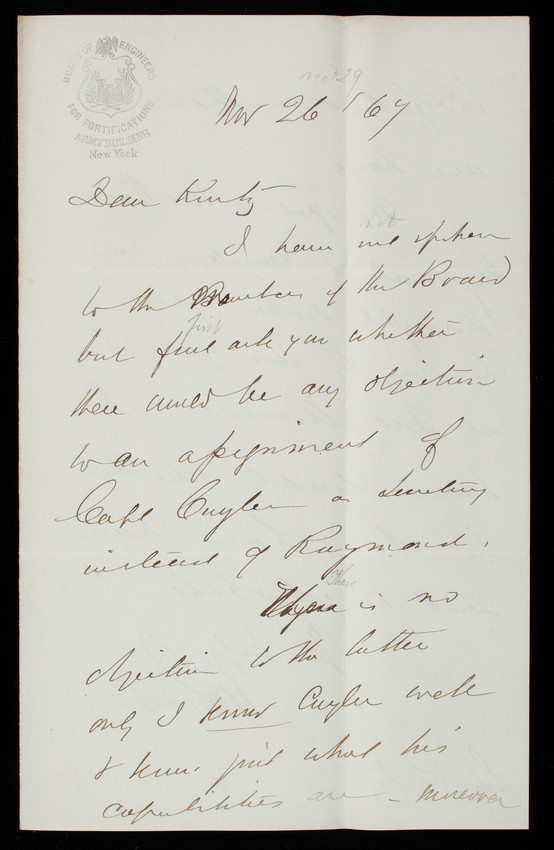 BOARD OF ENGINEERS
FOR FORTIFICATIONS
ARMY BUILDING
New York
Nov 29
Nov 26 '67
Dear Kurtz
not
I have not spoken
to the Members of the Board
first
but first ask you whether
there would be any objection
to an assignment of
Capt Cuyler as Secretary
instead of Raymond.
There
There is no
objection to the latter
only I know Cuyler well
& know just what his
capabilities are - moreover